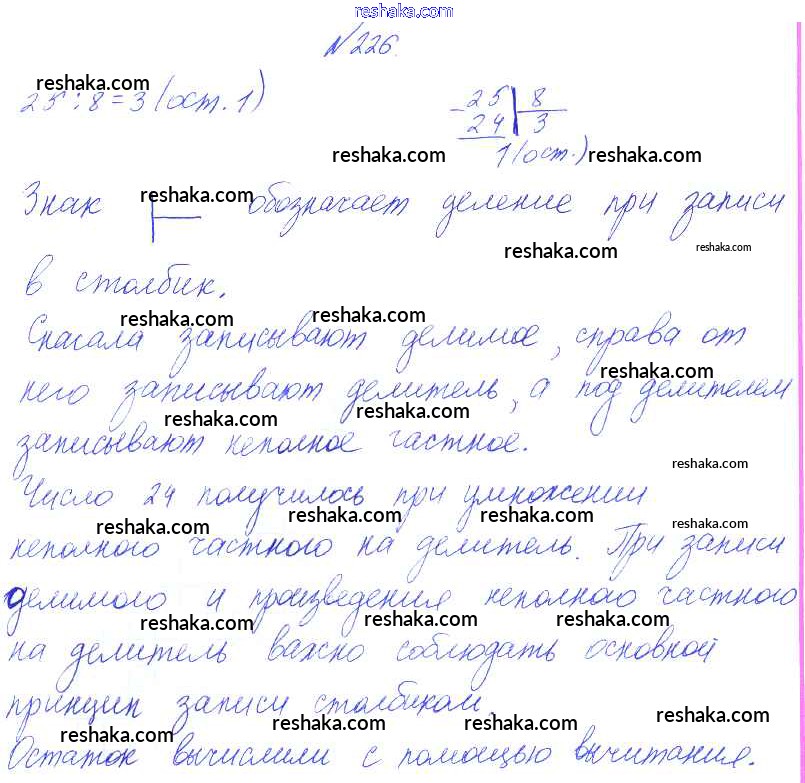 reshaka.com
№226.
reshaka.com
25:8=3(ост. 1)
25 8
24 3
1(ост.)
reshaka.com reshaka.com
Знак обозначает деление при записи
reshaka.com
reshaka.com reshaka.com
в столбик.
reshaka.com reshaka.com
Сначала записывают делимое, справа от
reshaka.com
него записывают делитель, а под делителем
reshaka.com reshaka.com
записывают неполное частное.
reshaka.com
Число 24 получилось при умножении
reshaka.com reshaka.com reshaka.com reshaka.com
неполного частного на делитель. При записи
делимого и произведения неполного частного
reshaka.com reshaka.com reshaka.com
на делитель важно соблюдать основной
принцип записи столбиком.
reshaka.com reshaka.com reshaka.com reshaka.com
Остаток вычислили с помощью вычитания.